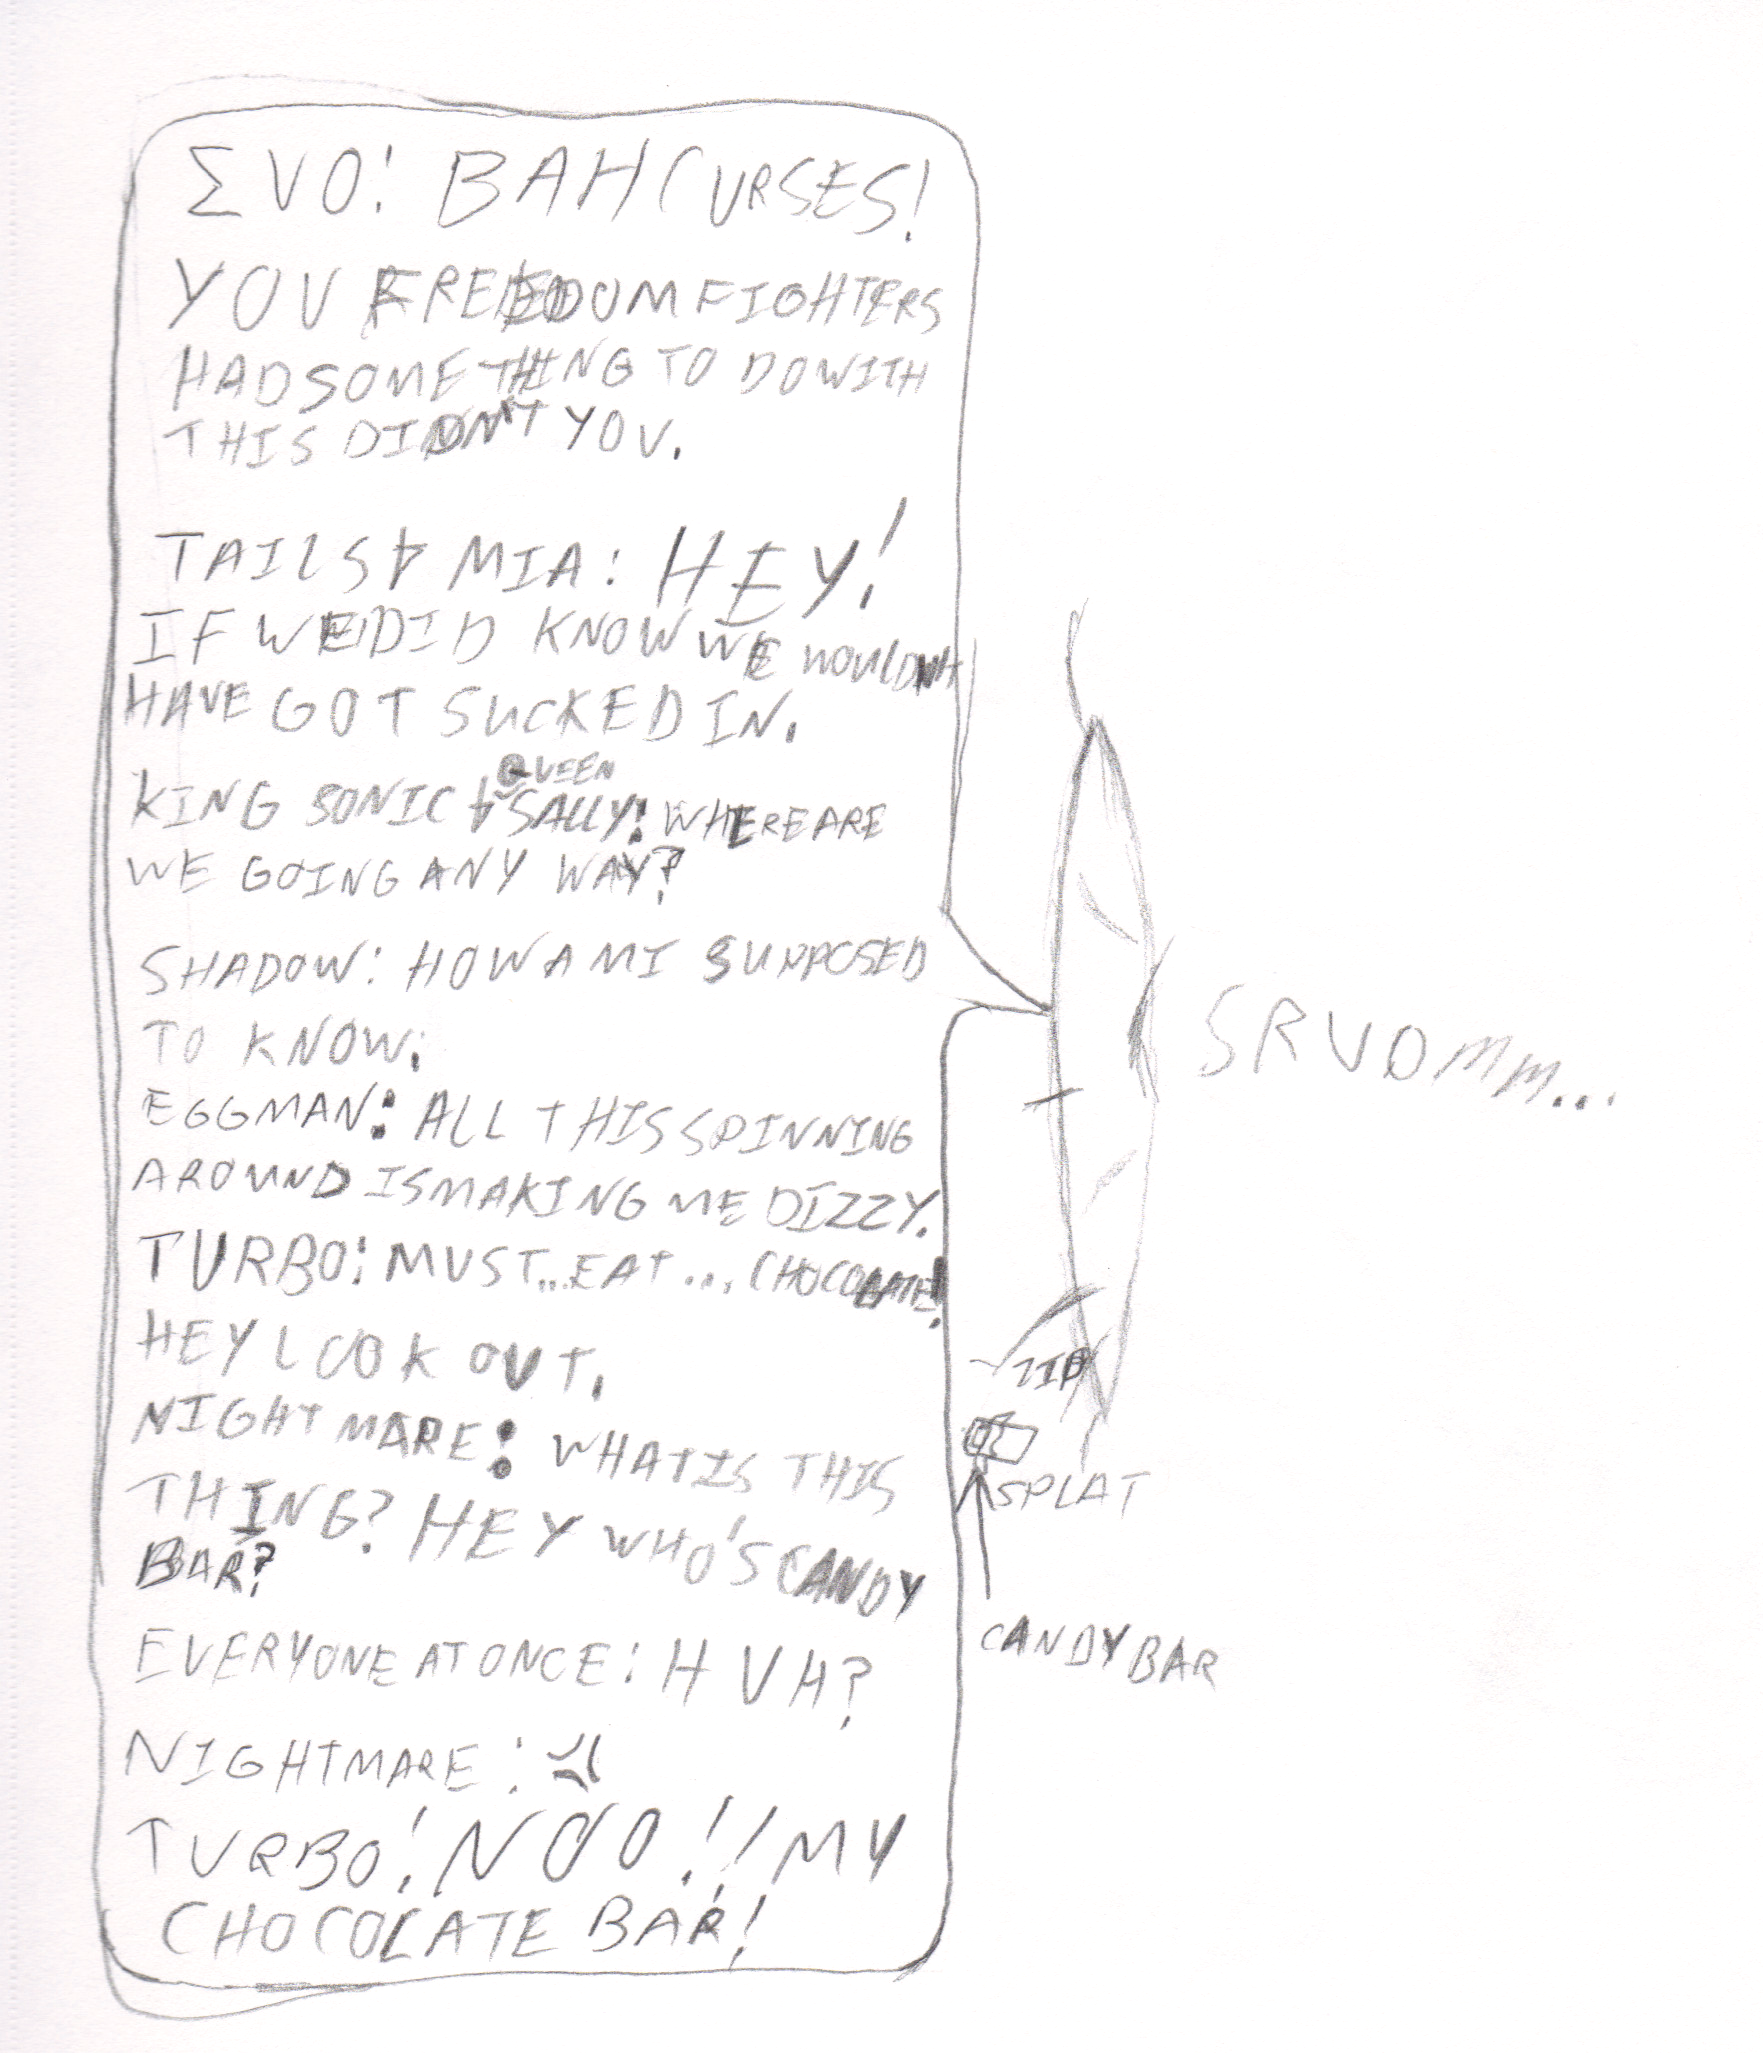 ΣVO: BAH CURSES!
YOU FREEDOM FIGHTERS
HAD SOMETHING TO DO WITH
THIS DIDN'T YOU.
TAILS & MIA: HEY!
IF WE DID KNOW WE WOULDN'T
HAVE GOT SUCKED IN.
KING SONIC & QUEEN SALLY: WHERE ARE
WE GOING ANY WAY?
SHADOW: HOW AM I SUPPOSED
TO KNOW.
EGGMAN: ALL THIS SPINNING
AROUND IS MAKING ME DIZZY.
TURBO: MUST...EAT...CHOCOLATE!
HEY LOOK OUT.
NIGHTMARE: WHAT IS THIS
THING? HEY WHO'S CANDY
BAR?
EVERYONE AT ONCE: HUH?
NIGHTMARE:
TURBO: NOO!! MY
CHOCOLATE BAR!
SRVOMM...
ZIP
SPLAT
CANDY BAR